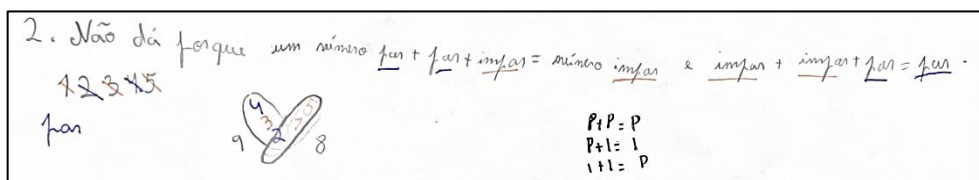 2. Não dá porque um número par + par + impar = número impar e impar + impar + par = par.
1 2 3 4 5
par
4
3
2
5
9
8
P+P=P
P+I=I
I+I=P